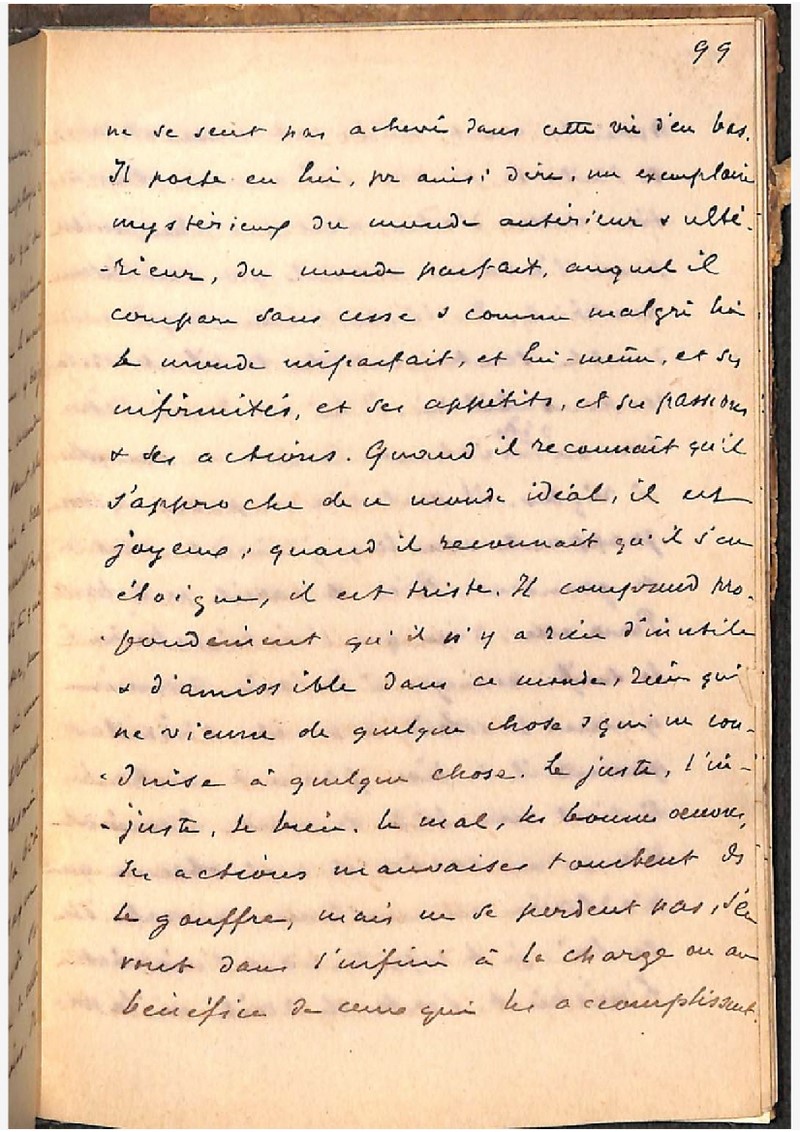 99
ne se sent pas achevé dans cette vie d'en bas.
Il porte en lui, pr ainsi dire, un exemplaire
mystérieux du monde antérieur & ulté-
-rieur, du monde parfait, auquel il
compare sans cesse & comme malgré lui
le monde imparfait, et lui-même, et ses
infirmités, et ses appétits, et ses passions
& ses actions. Quand il reconnaît qu'il
s'approche de ce monde idéal, il est
joyeux, quand il reconnait qu'il s'en
éloigne, il est triste. Il comprend pro-
fondément qu'il n'y a rien d'inutile
& d'amissible dans ce monde, rien qui
ne vienne de quelque chose & qui ne con-
-duise à quelque chose. Le juste, l'in-
-juste, le bien, le mal, les bonnes œuvres,
les actions mauvaises tombent ds
le gouffre, mais ne se perdent pas, s'en
vont dans l'infini à la charge ou au
bénéfice de ceux qui les accomplissent.